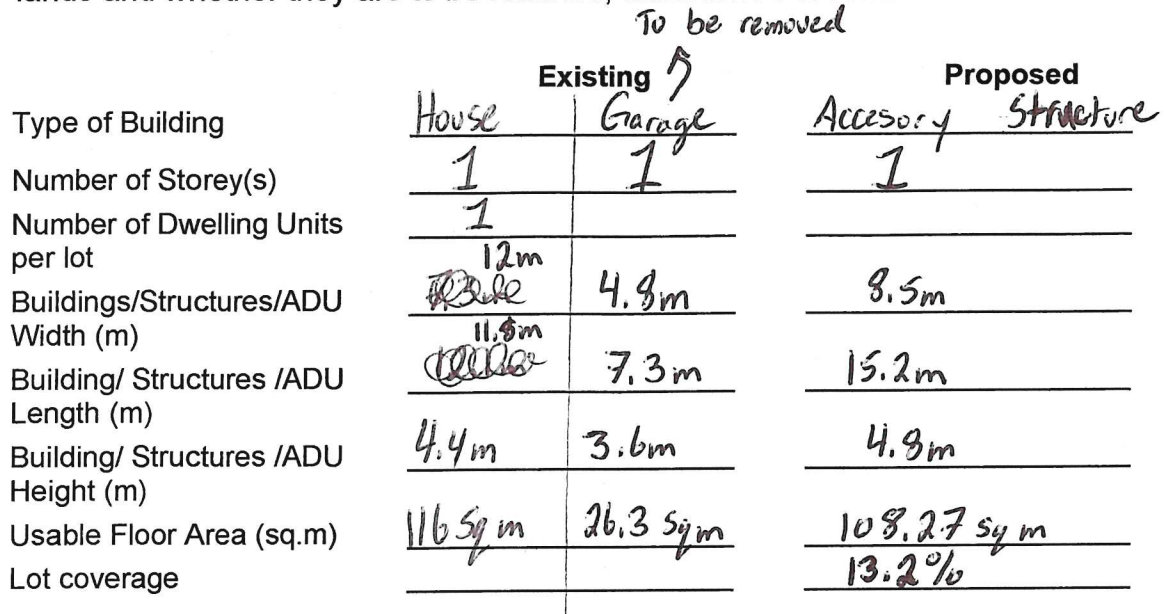 To be removed
Existing Proposed
Type of Building House Garage Accesory Structure
Number of Storey(s) 1 1 1
Number of Dwelling Units 1
per lot
12m
Buildings/Structures/ADU 4.8m 8.5m
Width (m)
11.8m
Building/ Structures /ADU 7.3m 15.2m
Length (m)
Building/ Structures /ADU 4.4m 3.6m 4.8m
Height (m)
Usable Floor Area (sq.m) 116 sq m 26.3 sqm 108.27 sq m
Lot coverage 13.2%